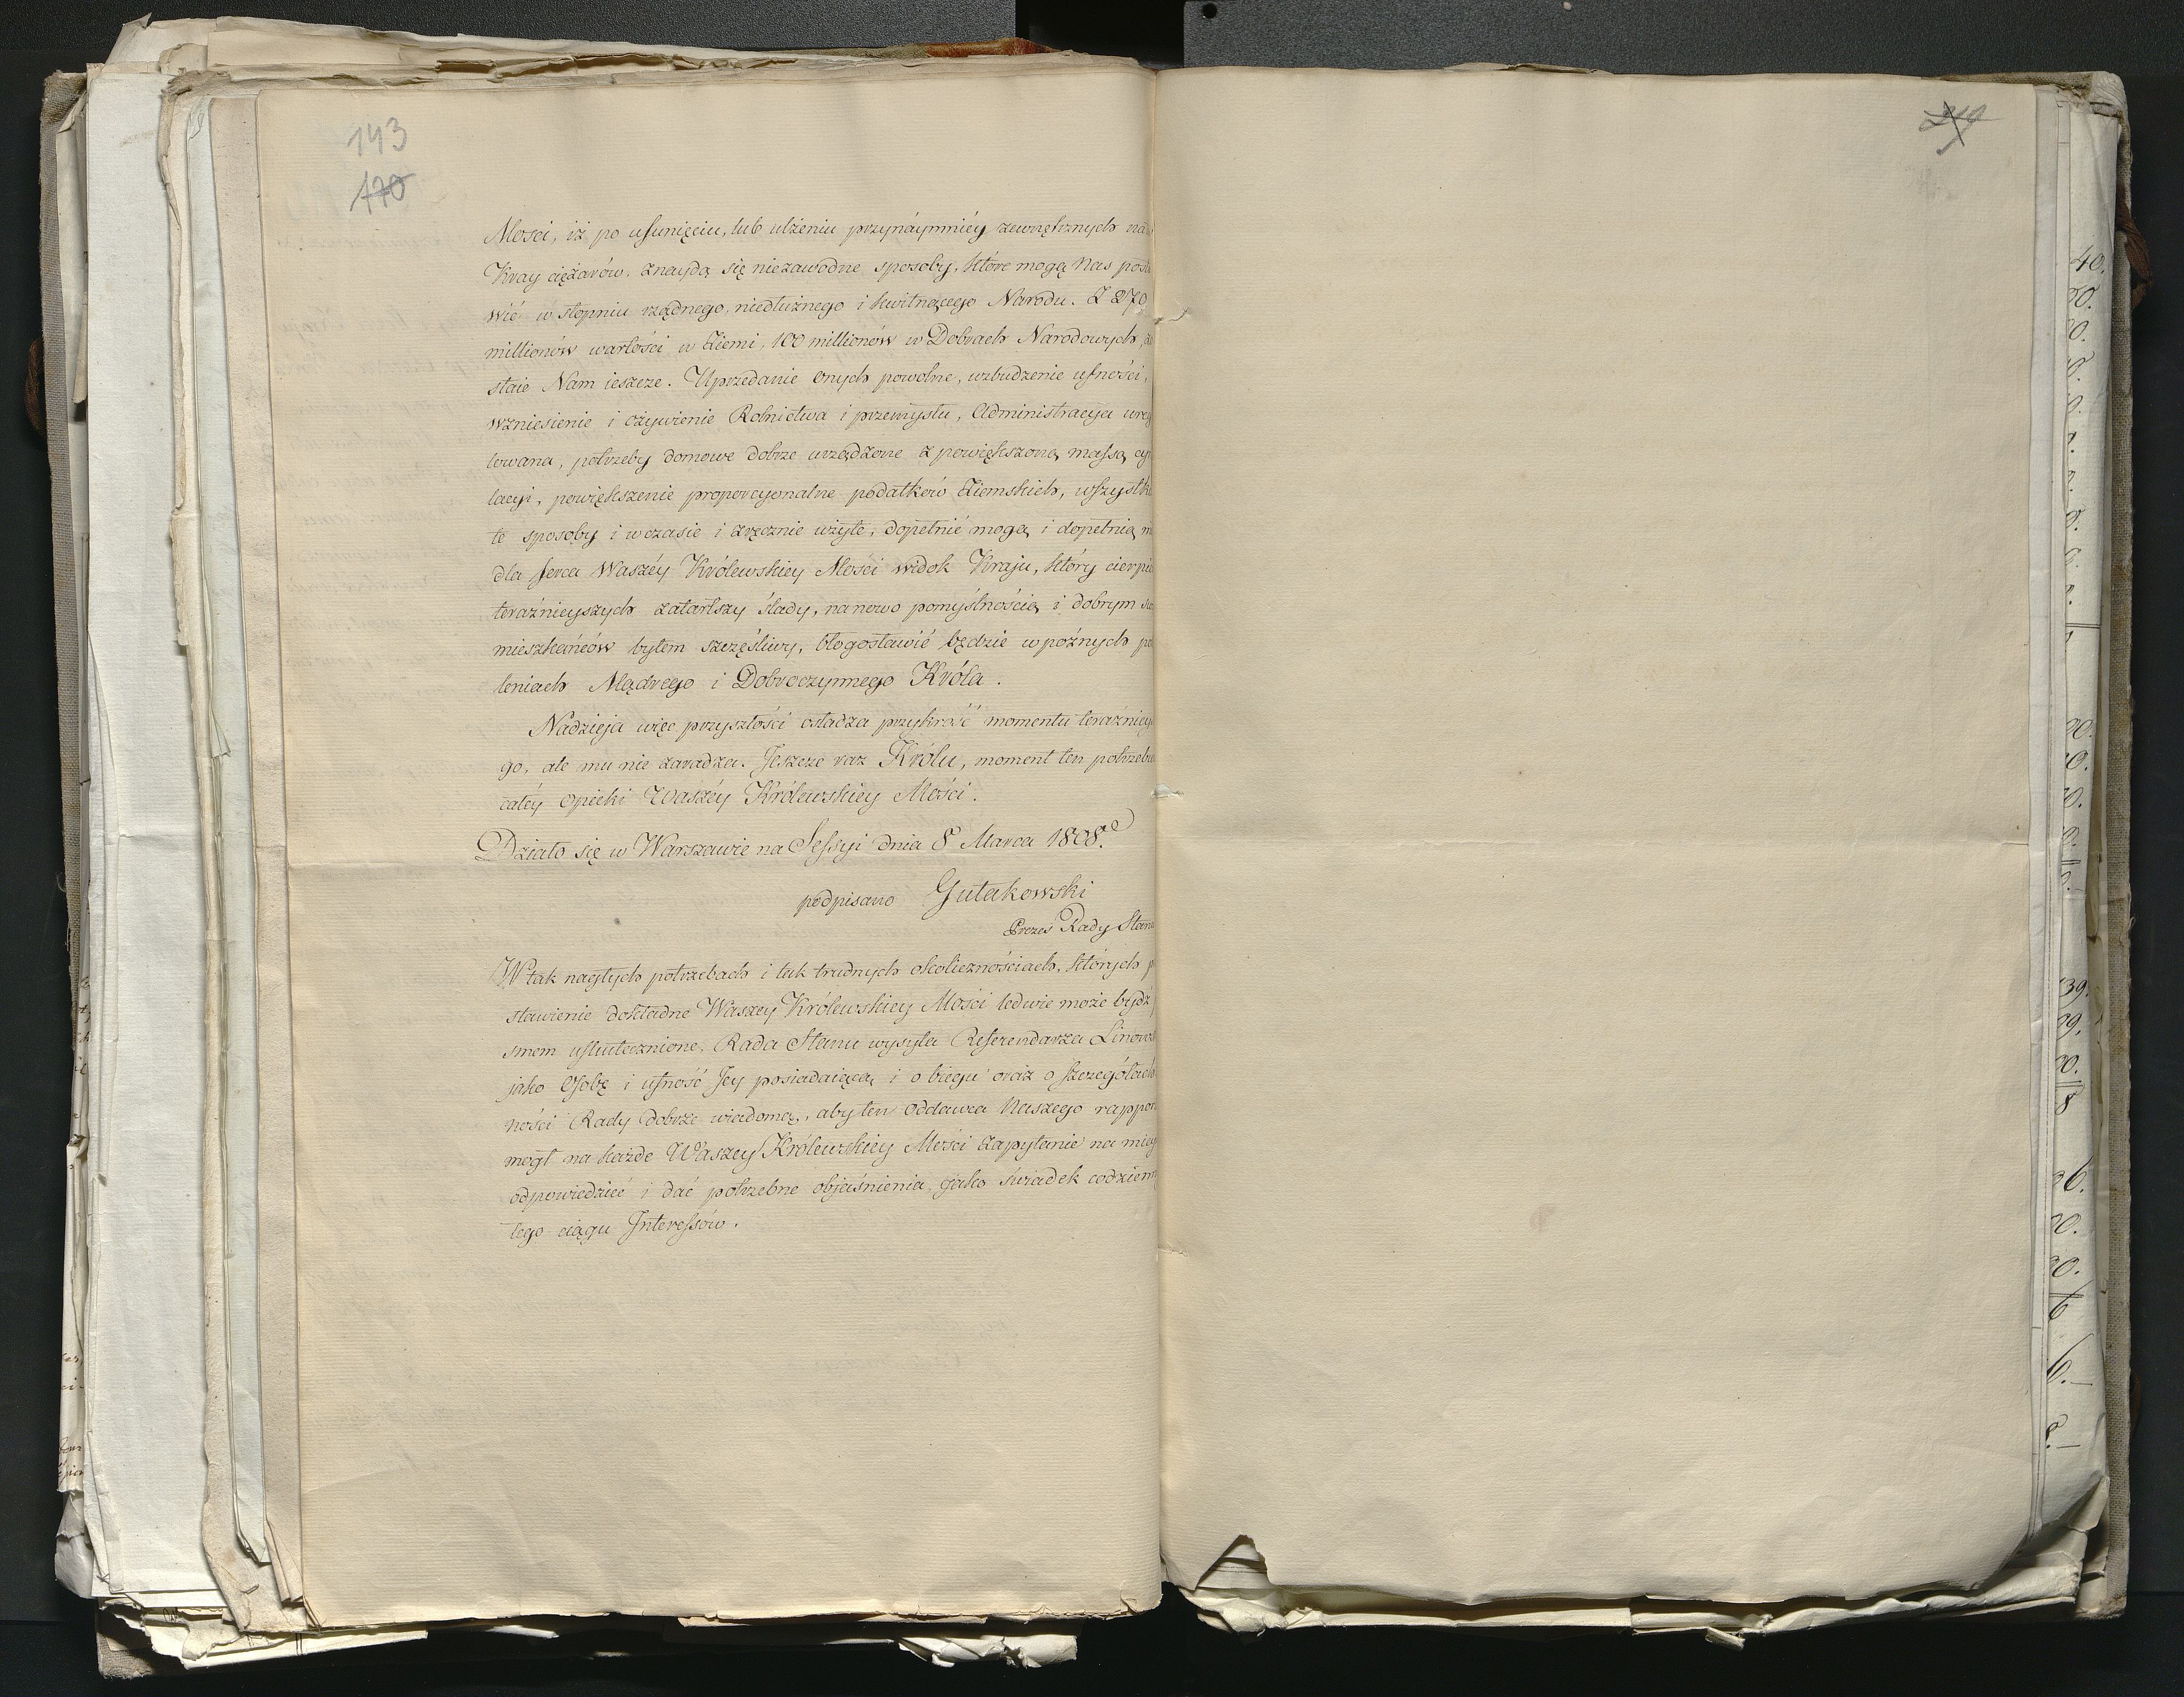 143
170
Mosci, iż po usunięciu, lub ulżeniu przynáymniéy zewnętrznych na
Kray ciężarów, znaydą się niezawodne sposoby, które mogą Nas posta
wić w stopniu rządnego, niedłużnego i kwitnącego Narodu. Z 270
millionów wartości w Ziemi, 100 millionów w Dobrach Narodowych, zo
staie Nam ieszcze. Uprzedanie onych powolne, wzbudzenie ufności,
wzniesienie i ożywienie Rolnictwa i przemysłu, Administracyia ureg
lowana, potrzeby domowe dobrze urządzone z powiększoną massą cyr
lacyi, powiększenie proporcyonalne podatków Ziemskich, wszystkie
te sposoby i wczasie i zręcznie użyte, dopełnić mogą i dopełnią
dla serca Waszéy Królewskiey Mości widok Kraju, który cierpie
teraźnieyszych zatarłszy ślady, nanowo pomyślnością i dobrym
mieszkańców bytem szczęśliwy, błogosławić będzie wpoźnych po
leniach Mądrego i Dobroczynnego Króla.
Nadzieja więc przyszłości osładza przykrość momentu teraźnieys
go, ale mu nie zaradza. Jeszcze raz Królu, moment ten potrzebuie
całéy opieki Waszéy Królewskiey Mości.
Działo się w Warszawie na Sessyi dnia 8 Marca 1808.
podpisano Gutakowski
Prezes Rady Stanu
W tak nagłych potrzebach i tak trudnych okolicznościach, których p
stawienie dokładne Waszey Królewskiey Mości ledwie może bydź
smem uskutecznione, Rada Stanu wysyła Referendarza Linows
jako Osobę i ufność Jey posiadaiącą i o biegu oraz o szczegółach
ności Rady dobrze wiadomą, aby ten Oddawca Naszego rappor
mogł na każde Waszey Królewskiey Mości Zapytanie na miey
odpowiedzieć i dać potrzebne objaśnienia, jako świadek codzienn
tego ciągu Interessów.
219
40.